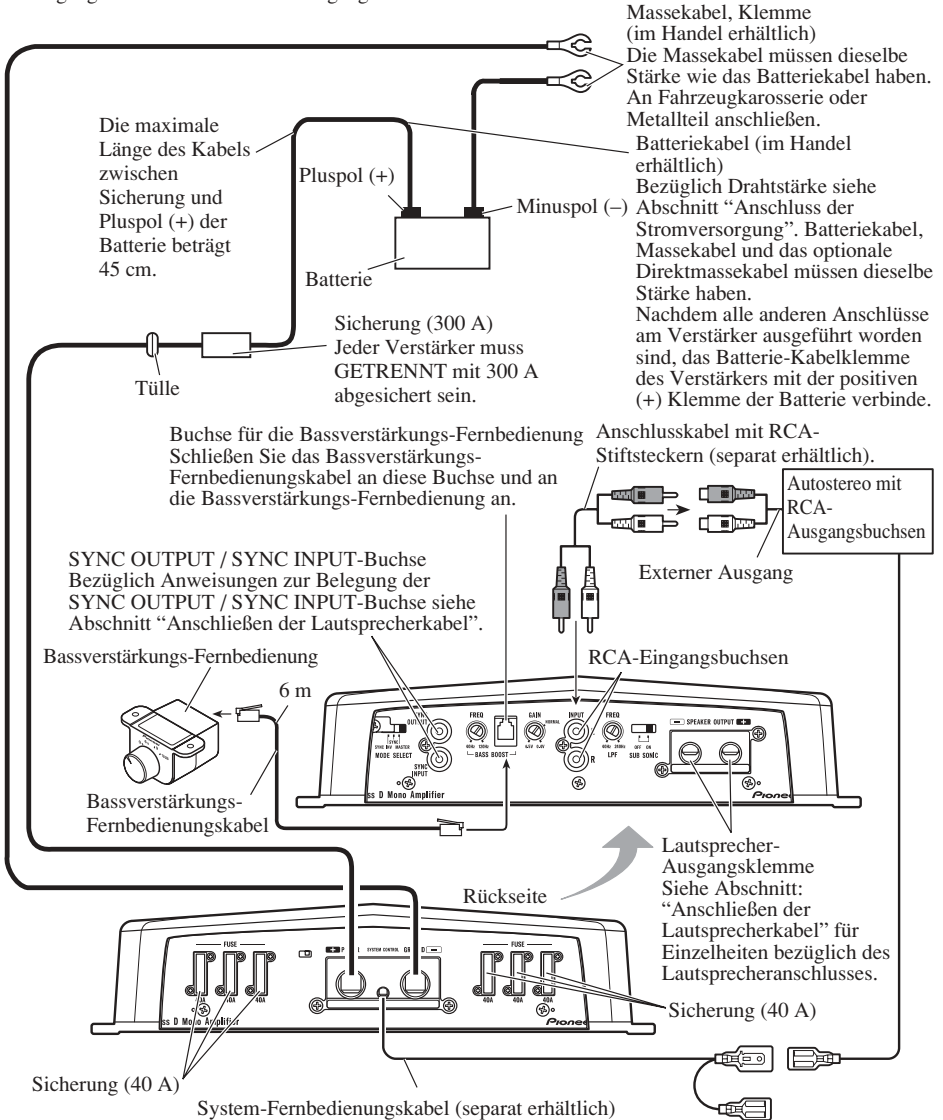 Massekabel, Klemme
(im Handel erhältlich)
Die Massekabel müssen dieselbe
Stärke wie das Batteriekabel haben.
An Fahrzeugkarosserie oder
Metallteil anschließen.
Die maximale
Länge des Kabels
zwischen
Sicherung und
Pluspol (+) der
Batterie beträgt
45 cm.
Pluspol (+)
Minuspol (–)
Batterie
Batteriekabel (im Handel
erhältlich)
Bezüglich Drahtstärke siehe
Abschnitt “Anschluss der
Stromversorgung”. Batteriekabel,
Massekabel und das optionale
Direktmassekabel müssen dieselbe
Stärke haben.
Nachdem alle anderen Anschlüsse
am Verstärker ausgeführt worden
sind, das Batterie-Kabelklemme
des Verstärkers mit der positiven
(+) Klemme der Batterie verbinde.
Tülle
Sicherung (300 A)
Jeder Verstärker muss
GETRENNT mit 300 A
abgesichert sein.
Buchse für die Bassverstärkungs-Fernbedienung
Schließen Sie das Bassverstärkungs-
Fernbedienungskabel an diese Buchse und an
die Bassverstärkungs-Fernbedienung an.
Anschlusskabel mit RCA-
Stiftsteckern (separat erhältlich).
Autostereo mit
RCA-
Ausgangsbuchsen
Externer Ausgang
SYNC OUTPUT / SYNC INPUT-Buchse
Bezüglich Anweisungen zur Belegung der
SYNC OUTPUT / SYNC INPUT-Buchse siehe
Abschnitt “Anschließen der Lautsprecherkabel”.
Bassverstärkungs-Fernbedienung
6 m
RCA-Eingangsbuchsen
SYNC
OUTPUT
SYNC
SYNC INV MASTER
MODE SELECT
SYNC
INPUT
FREQ
40Hz 120Hz
BASS BOOST
GAIN
NORMAL
6.5V 0.4V
INPUT
R
FREQ
40Hz 240Hz
LPF
OFF ON
SUB SONIC
– SPEAKER OUTPUT +
ss D Mono Amplifier
Pionee
Bassverstärkungs-
Fernbedienungskabel
Lautsprecher-
Ausgangsklemme
Siehe Abschnitt:
“Anschließen der
Lautsprecherkabel” für
Einzelheiten bezüglich des
Lautsprecheranschlusses.
Rückseite
FUSE
40A
+ P
SYSTEM CONTROL
GR D –
FUSE
40A 40A
ss D Mono Amplifier
Pionee
Sicherung (40 A)
Sicherung (40 A)
System-Fernbedienungskabel (separat erhältlich)